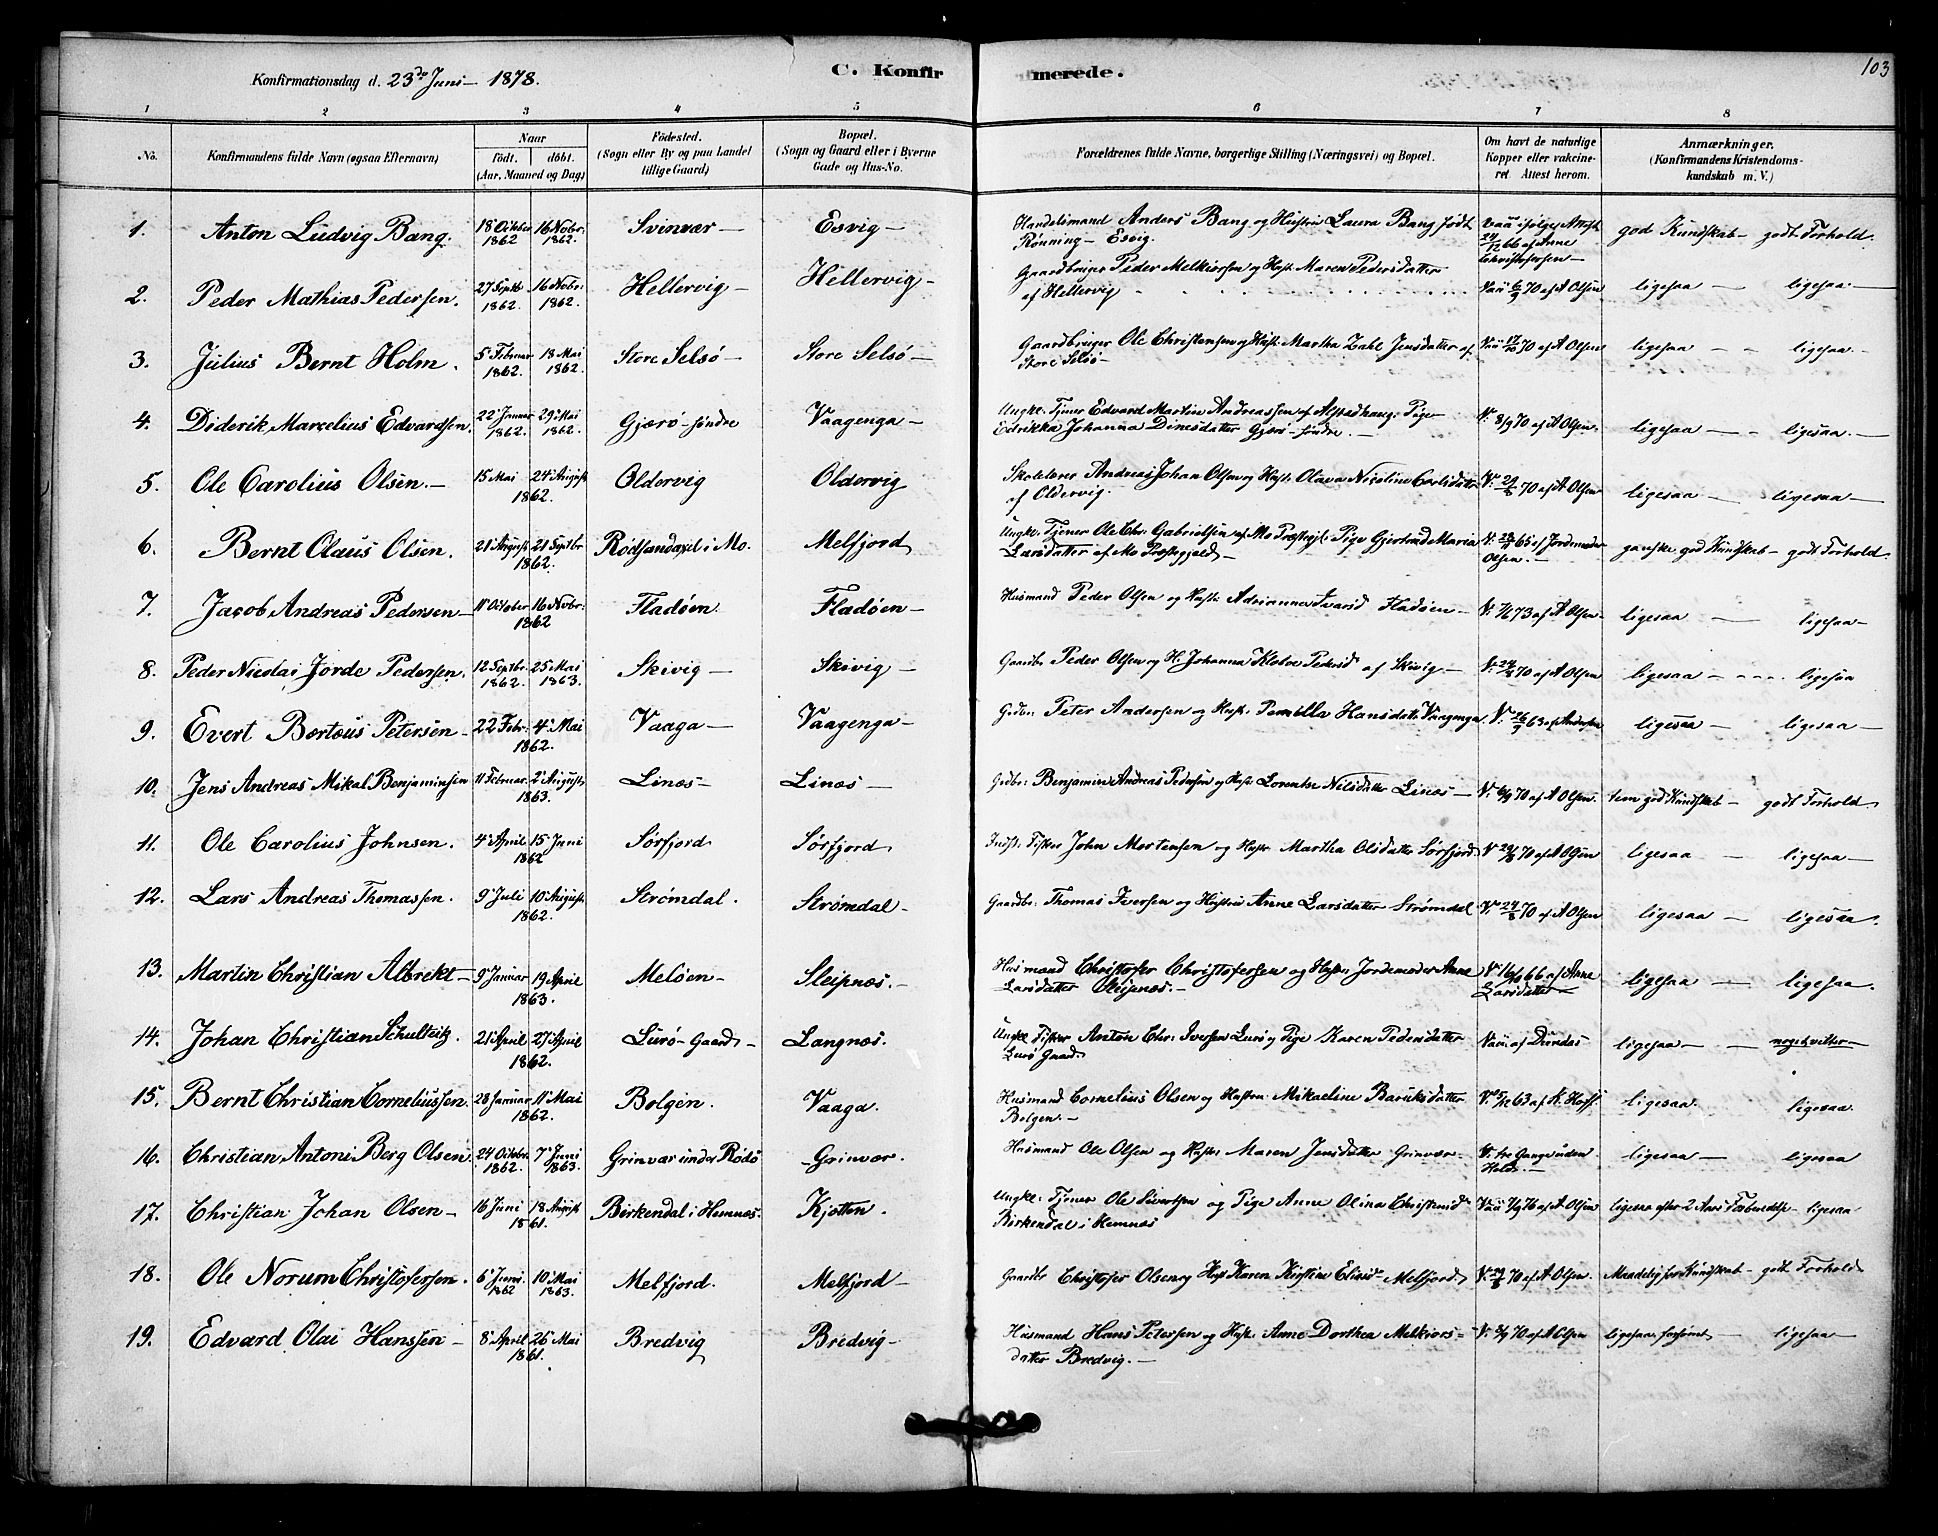 103
Konfirmationsdag d. 23de Juni 1878.
C. Konfirmerede.
1 2 3 4 5 6 7 8
No.
Konfirmandens fulde Navn (ogsaa Efternavn)
Naar
födt. döbt.
(Aar, Maaned og Dag)
Födested.
(Sogn eller By og paa Landet
tillige Gaard)
Bopæl.
(Sogn og Gaard eller i Byerne
Gade og Hus-No.
Forældrenes fulde Navne, borgerlige Stilling (Næringsvei) og Bopæl.
Om havt de naturlige
Kopper eller vakcine-
ret Attest herom.
Anmærkninger.
(Konfirmandens Kristendoms-
kundskab m. V.)
1. Anton Ludvig Bang. 18 Octobr 1862 16 Nobr. 1862. Svinvær — Esvig — Handelsmand Anders Bang og Hustru Laura Bang født
Rønning — Esvig. Vaci ifølge Attest 24/12 66 af Anne Christofersen — god Kundskab — godt Forhold.
2. Peder Mathias Pedersen. 27 Septb 1862. 16 Nobr: 1862. Hellervig — Hellervig — Gaardbruger Peder Melkiorsen og Hust: Maren Pedersdatter
af Hellervig Vaci 6/9 70 af A Olsen ligesaa — ligesaa. —
3. Julius Bernt Holm. 5 Februar 1862. 18 Mai 1862. Store Selsø — Store Selsø — Gaardbruger Ole Christensen og Hust: Martha Zahl Jensdatter af
Store Selsø — 70 af A Olsen ligesaa — ligesaa. —
4. Diderik Marcelius Edvardsen. 22 Januar 1862. 29 Mai 1862. Gjærø-søndre Vaagenga — Ungk: Tjener Edvard Martin Andreassen af Alstadhaug: Pige
Edrikka Johanna Dinesdatter Gjærø-søndre. — V: 8/9 70 af A Olsen. ligesaa — ligesaa. —
5. Ole Carolius Olsen. — 15 Mai 24 August 1862. Oldervig Oldervig Skolelærer Andreas Johan Olsen og Hust: Olava Nicoline Carlsdatter
af Oldervig. 70 af A Olsen ligesaa — ligesaa —
6. Bernt Olaus Olsen. 21 August 21 Septbr 1862. Rødsandaxel i Mo. Melfjord Ungk: Tjener Ole Chr: Gabrielsen af Mo Præstegjl: Pige Gjertrud Maria
Larsdatter af Mo Præstegjeld — 65 af Jordemoder Olsen. — ganske god Kundskab — godt Forhold.
7. Jacob Andreas Pedersen — 11 October 16 Nobr: 1862 Fladøen. Fladøen — Husmand Peder Olsen og Hust: Adrianna Fladøen — 73 af A Olsen — ligesaa — ligesaa —
8. Peder Nicolai Jorde Pedersen. 12 Septbr. 1862. 25 Mai 1863. Skivig — Skivig — Gaardb: Peder Olsen og H. Johanna Pedersd af Skivig — 70 af A Olsen ligesaa — ligesaa
9. Evert Bertæus Petersen — 22 Febr: 4 Mai 1862. Vaaga — Vaagenga — Grdbr: Peter Andersen og Hust: Pernilla Hansdatter Vaagenga V: 63 af Andersen ligesaa — ligesaa —
10. Jens Andreas Mikal Benjaminsen 11 Februar. 2 August 1863. Linæs — Linæs — Grdbr: Benjamin Andreas Pedersen og Hust: Lorentze Nilsdatter Linæs — V. 6/9 70 af A Olsen. tem god Kundskab — godt Forhold
11. Ole Carolius Johnsen. 4 April 15 Juni 1862 Sørfjord Sørfjord Indst: Fisker John Mortensen og Hust: Martha Olsdatter Sørfjord 70 af A Olsen ligesaa — ligesaa —
12. Lars Andreas Thomassen. 9 Juli 10 August 1862. Strømdal. Strømdal — Gaardbr: Thomas Iversen og Hustru Anne Larsdatter Strømdal V. 24/8 70 af A Olsen ligesaa — ligesaa.
13. Martin Christian Albrekt — 9 Januar 19 April 1863. Meløen — Sleipnæs. — Husmand Christofer Christofersen og Hust: Jordemoder Anne
Larsdatter Sleipnæs. — 66 af Anne Larsdatter — ligesaa — ligesaa.
14. Johan Christian Schulteitz. 21 April 27 April 1862. Lurø-Gaard — Langnæs. Ungk: Fisker Anton Chr: Iversen Lurø og Pige Karen Pedersdatter
Lurø Gaard Vaci. af Dundas ligesaa — noget vilter —
15. Bernt Christian Corneliussen. 28 Januar 11 Mai 1862. Bolgen. Vaaga. Husmand Cornelius Olsen og Hustru Mikaeline Baruksdatter
Bolgen. V. 5/12 63 af K. Horst ligesaa. ligesaa.
16. Christian Antoni Berg Olsen. 24 Octobr. 1862. 7 Juni 1863. Grinvær under Rødø Grinvær. Husmand Ole Olsen og Hust: Maren Jensdatter Grinvær. V. tre Gange uden Held. — ligesaa — ligesaa
17. Christian Johan Olsen — 16 Juni 18 August 1861. Birkendal i Hemnæs. Kjøtten. Ungk: Tjener Ole Sivertsen og Pige Anne Olina Christensd
Birkendal i Hemnæs Vaci 7/9 76 af A Olsen ligesaa efter 2 Aars Forberedelse — ligesaa
18. Ole Norum Christofersen. 6 Juni. 1862 10 Mai 1863. Melfjord. Melfjord — Gaardbr Christofer Olsen og Hust Karen Kirstine Eliasd Melfjord 70 af A Olsen. Maadelig for Kundskab — godt Forhold
19. Edvard Olai Hanssen — 8 April 26 Mai 1861. Bredvig Bredvig — Husmand Hans Petersen og Hust: Anne Dorthea Melkiors-
datter Bredvig. — 70 af A Olsen ligesaa — ligesaa